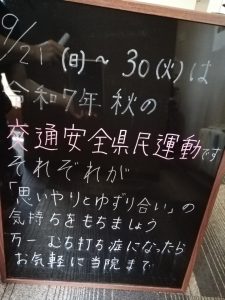 9/21(日)～30(火)は
令和7年 秋の
交通安全県民運動です
それぞれが
「思いやりとゆずり合い」の
気持ちをもちましょう
万一 むち打ち症になったら
お気軽に当院まで